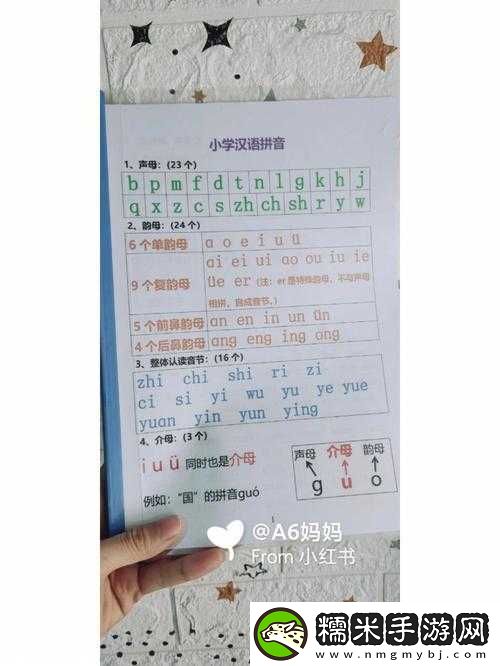 小学汉语拼音
1、声母：（23个）
b p m f d t n l g k h j
q x z c s zh ch sh r y w
2、韵母：（24个）
6个单韵母 a o e i u ü
9个复韵母 ai ei ui ao ou iu ie
üe er（注：er是特殊韵母，不与声母
相拼，自成音节。）
5个前鼻韵母 an en in un ün
4个后鼻韵母 ang eng ing ong
3、整体认读音节：（16个）
zhi chi shi ri zi
ci si yi wu yu ye yue
yuan yin yun ying
4、介母：（3个）
i u ü 同时也是介母
例如：“国”的拼音guó
声母 介母 韵母
g u o
1
@A6妈妈
From 小红书
糯米手游网
www.nmgmybj.com